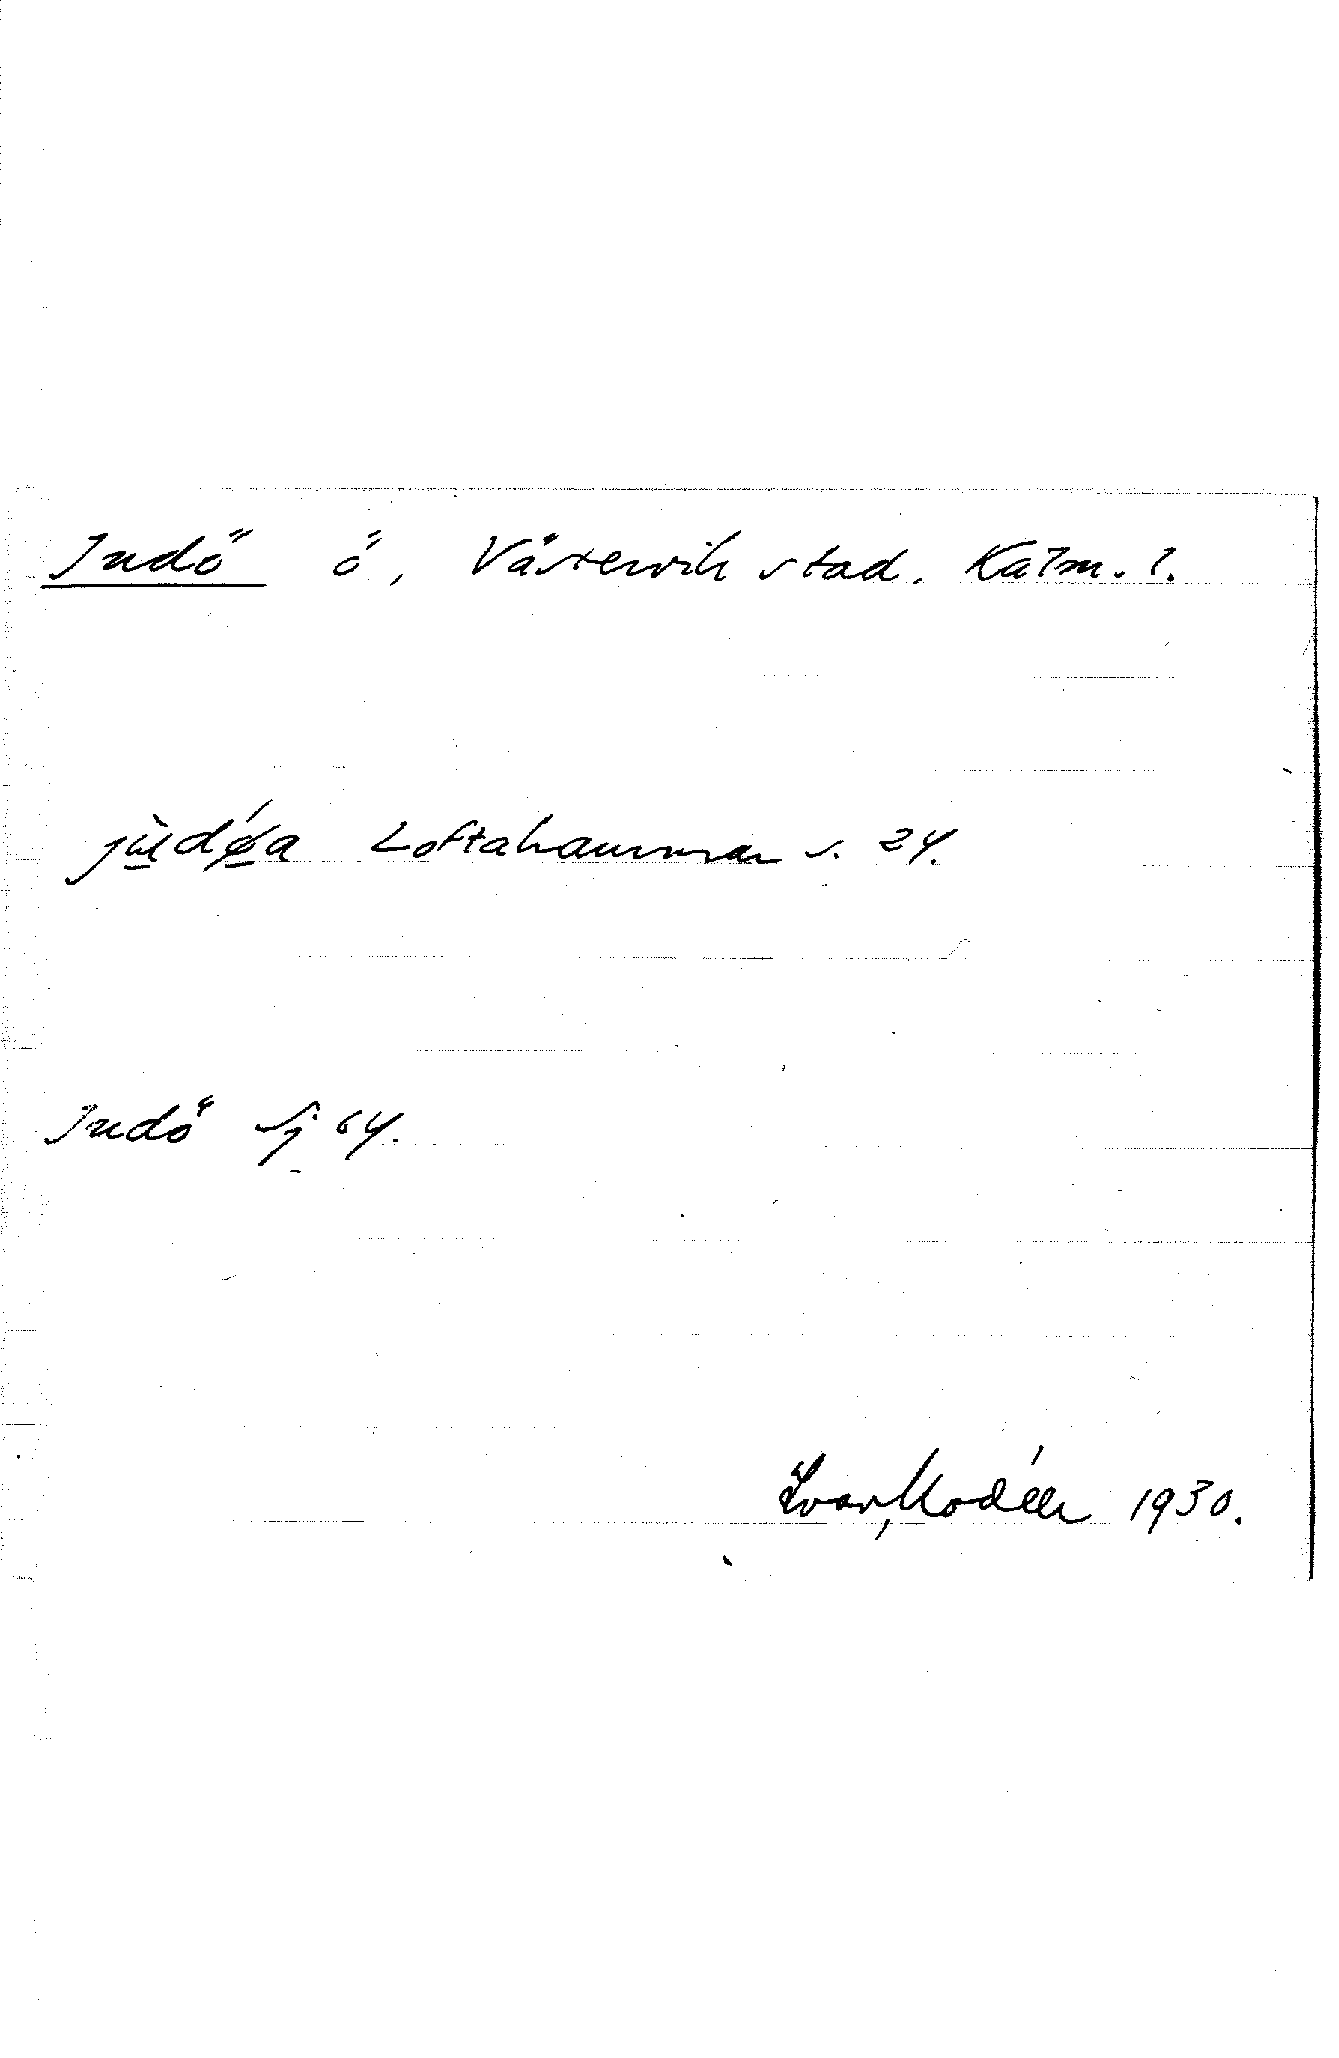 Judö ö, Västervik stad. Kalm. l.
jùdǿa Loftahammar s. 24.
Judö Sj 64.
Ivar Modéer 1930.